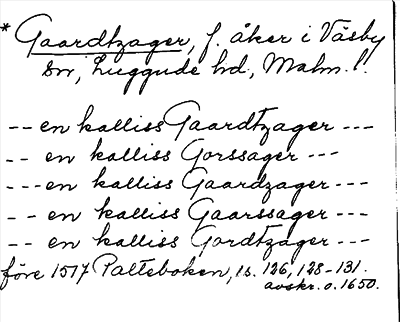 * Gaardtzager, f. åker i Väsby
sn, Luggude hd., Malm. l.
-- en kalliss Gaardtzager ---
-- en kalliss Gorssager ---
--- en kalliss Gaardzager ---
-- en kalliss Gaarssager ---
-- en kalliss Gordtzager ---
före 1517 Palteboken, s. 126, 128-131.
avskr. o. 1650.